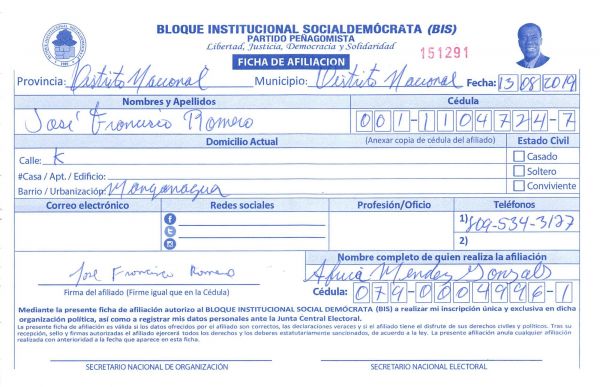 BLOQUE INSTITUCIONAL SOCIALDEMÓCRATA (BIS)
PARTIDO PEÑAGOMISTA
Libertad, Justicia, Democracia y Solidaridad
151291
FICHA DE AFILIACION
Provincia: Distrito Nacional Municipio: Distrito Nacional Fecha: 13 08 2019
Nombres y Apellidos Cédula
José Francisco Romero 001-1104724-7
Domicilio Actual (Anexar copia de cédula del afiliado) Estado Civil
Calle: K Casado
#Casa / Apt. / Edificio: Soltero
Barrio / Urbanización: Manganagua Conviviente
Correo electrónico Redes sociales Profesión/Oficio Teléfonos
1) 809-534-3127
2)
Nombre completo de quien realiza la afiliación
José Francisco Romero Mendez
Firma del afiliado (Firme igual que en la Cédula) Cédula: 079-0004996-1
Mediante la presente ficha de afiliación autorizo al BLOQUE INSTITUCIONAL SOCIAL DEMÓCRATA (BIS) a realizar mi inscripción única y exclusiva en dicha
organización política, así como a registrar mis datos personales ante la Junta Central Electoral.
La presente ficha de afiliación es válida si los datos ofrecidos por el afiliado son correctos, las declaraciones veraces y si el afiliado tiene el disfrute de sus derechos civiles y políticos. Tras su
recepción, sello y firmas autorizadas el afiliado ejercerá todos los derechos y los deberes estatutariamente sancionados, de acuerdo a la ley. La presente afiliación anula cualquier afiliación
realizada con anterioridad a la fecha que aparece en esta ficha.
SECRETARIO NACIONAL DE ORGANIZACIÓN SECRETARIO NACIONAL ELECTORAL